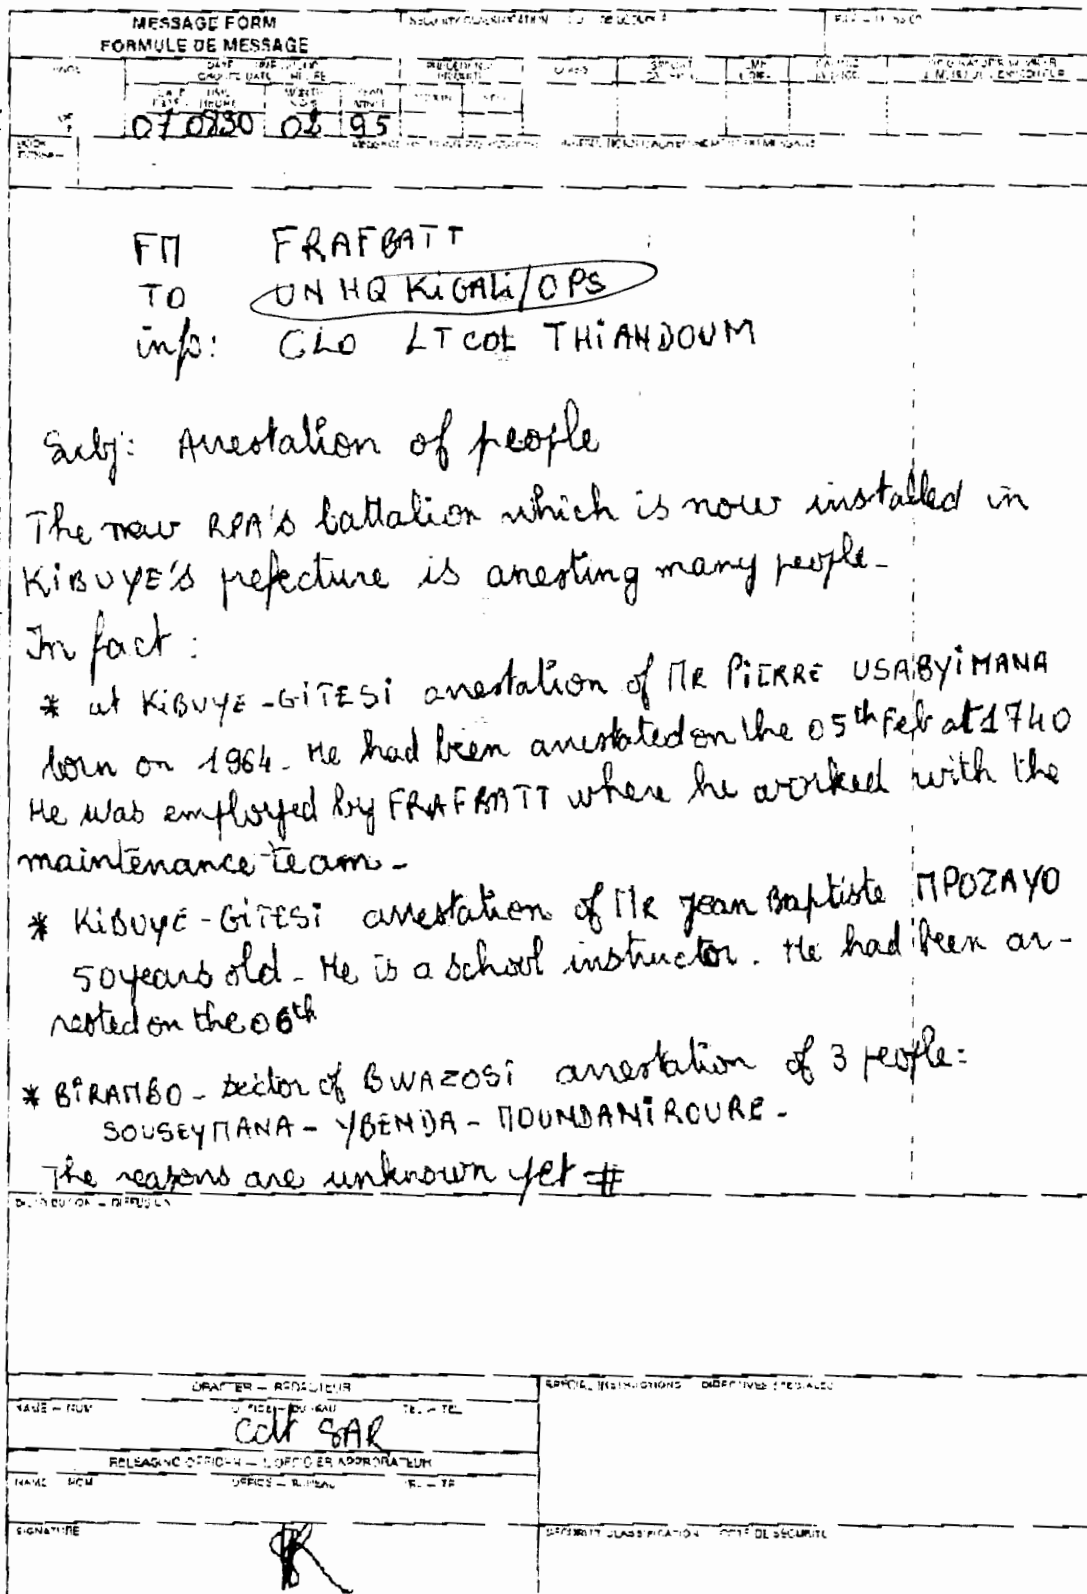 MESSAGE FORM
FORMULE DE MESSAGE
07 0830 02 95
FM FRAFBATT
TO UN HQ KiGALi/OPS
info: CLO LT COL THiANDOUM
Subj: Arrestation of people
The new RPA's battalion which is now installed in
KiBUYE's prefecture is arresting many people -
In fact :
* at KiBUYE - GiTESi arrestation of MR PiERRE USABYiMANA
born on 1964. He had been arrestated on the 05th Feb at 1740
He was employed by FRAFBATT where he worked with the
maintenance team -
* KiBUYE - GiTESi arrestation of MR Jean Baptiste MPOZAYO
50 years old - He is a school instructor. He had been ar-
rested on the 06th
* BiRAMBO - sector of BWAZOSi arrestation of 3 people:
SOUSEYMANA - YBENDA - MOUNDANiROURE -
The reasons are unknown yet #
DISTRIBUTION — DIFFUSION
DRAFTER — RÉDACTEUR
SPECIAL INSTRUCTIONS DIRECTIVES SPÉCIALES
NAME — NOM OFFICE — BUREAU TEL — TÉL
Cdt SAR
RELEASING OFFICER — L'OFFICIER APPROBATEUR
NAME NOM OFFICE — BUREAU
SIGNATURE
SECURITY CLASSIFICATION COTE DE SÉCURITÉ